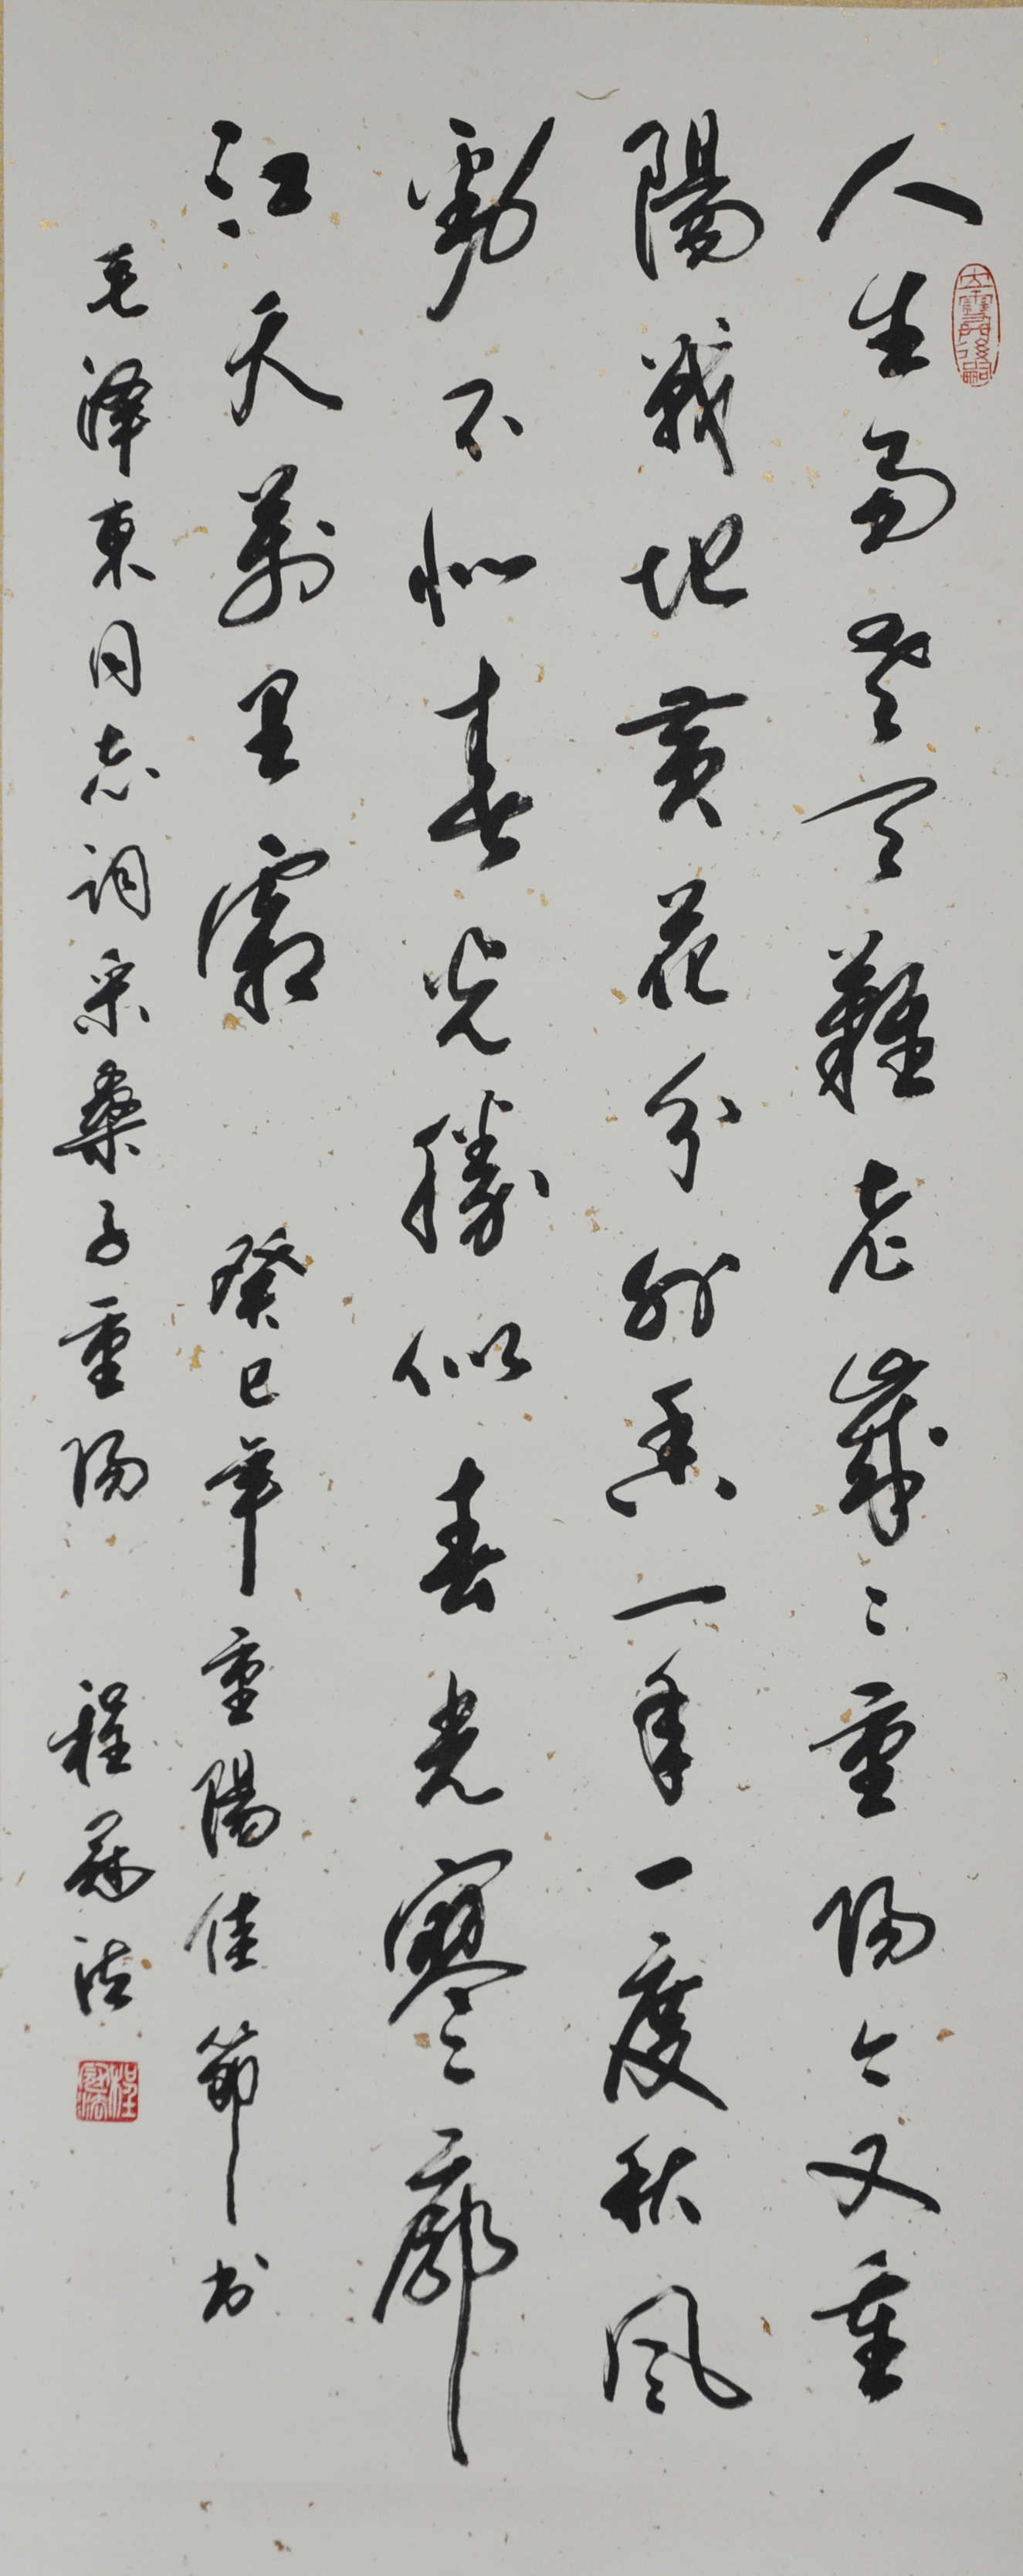 人生易老天難老歲〻重陽今又重
陽戰地黄花分外香一年一度秋風
勁不似春光勝似春光寥廓
江天萬里霜
癸巳年重陽佳節书
毛泽東同志词采桑子重阳 程冠法